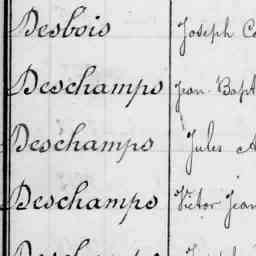 Desbois Joseph
Deschamps Jean Bapt
Deschamps Jules A
Deschamps Victor Jean